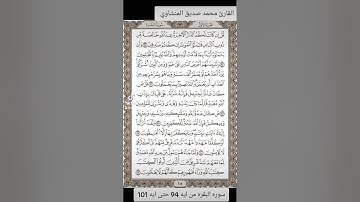 القارئ محمد صديق المنشاوي
قل إن كانت لكم الدار الآخرة عند الله خالصة من
دون الناس فتمنوا الموت إن كنتم صادقين
ولن يتمنوه أبدا بما قدمت أيديهم والله عليم بالظالمين
ولتجدنهم أحرص الناس على حياة ومن الذين أشركوا
يود أحدهم لو يعمر ألف سنة وما هو بمزحزحه من
العذاب أن يعمر والله بصير بما يعملون قل من كان
عدوا لجبريل فإنه نزله على قلبك بإذن
الله مصدقا لما بين يديه وهدى وبشرى للمؤمنين
من كان عدوا لله وملائكته ورسله وجبريل
وميكال فإن الله عدو للكافرين ولقد أنزلنا
إليك آيات بينات وما يكفر بها إلا الفاسقون
أوكلما عاهدوا عهدا نبذه فريق منهم بل أكثرهم
لا يؤمنون ولما جاءهم رسول من عند الله مصدق
لما معهم نبذ فريق من الذين أوتوا الكتاب كتاب
الله وراء ظهورهم كأنهم لا يعلمون
١٥
سوره البقره من ايه 94 حتى ايه 101